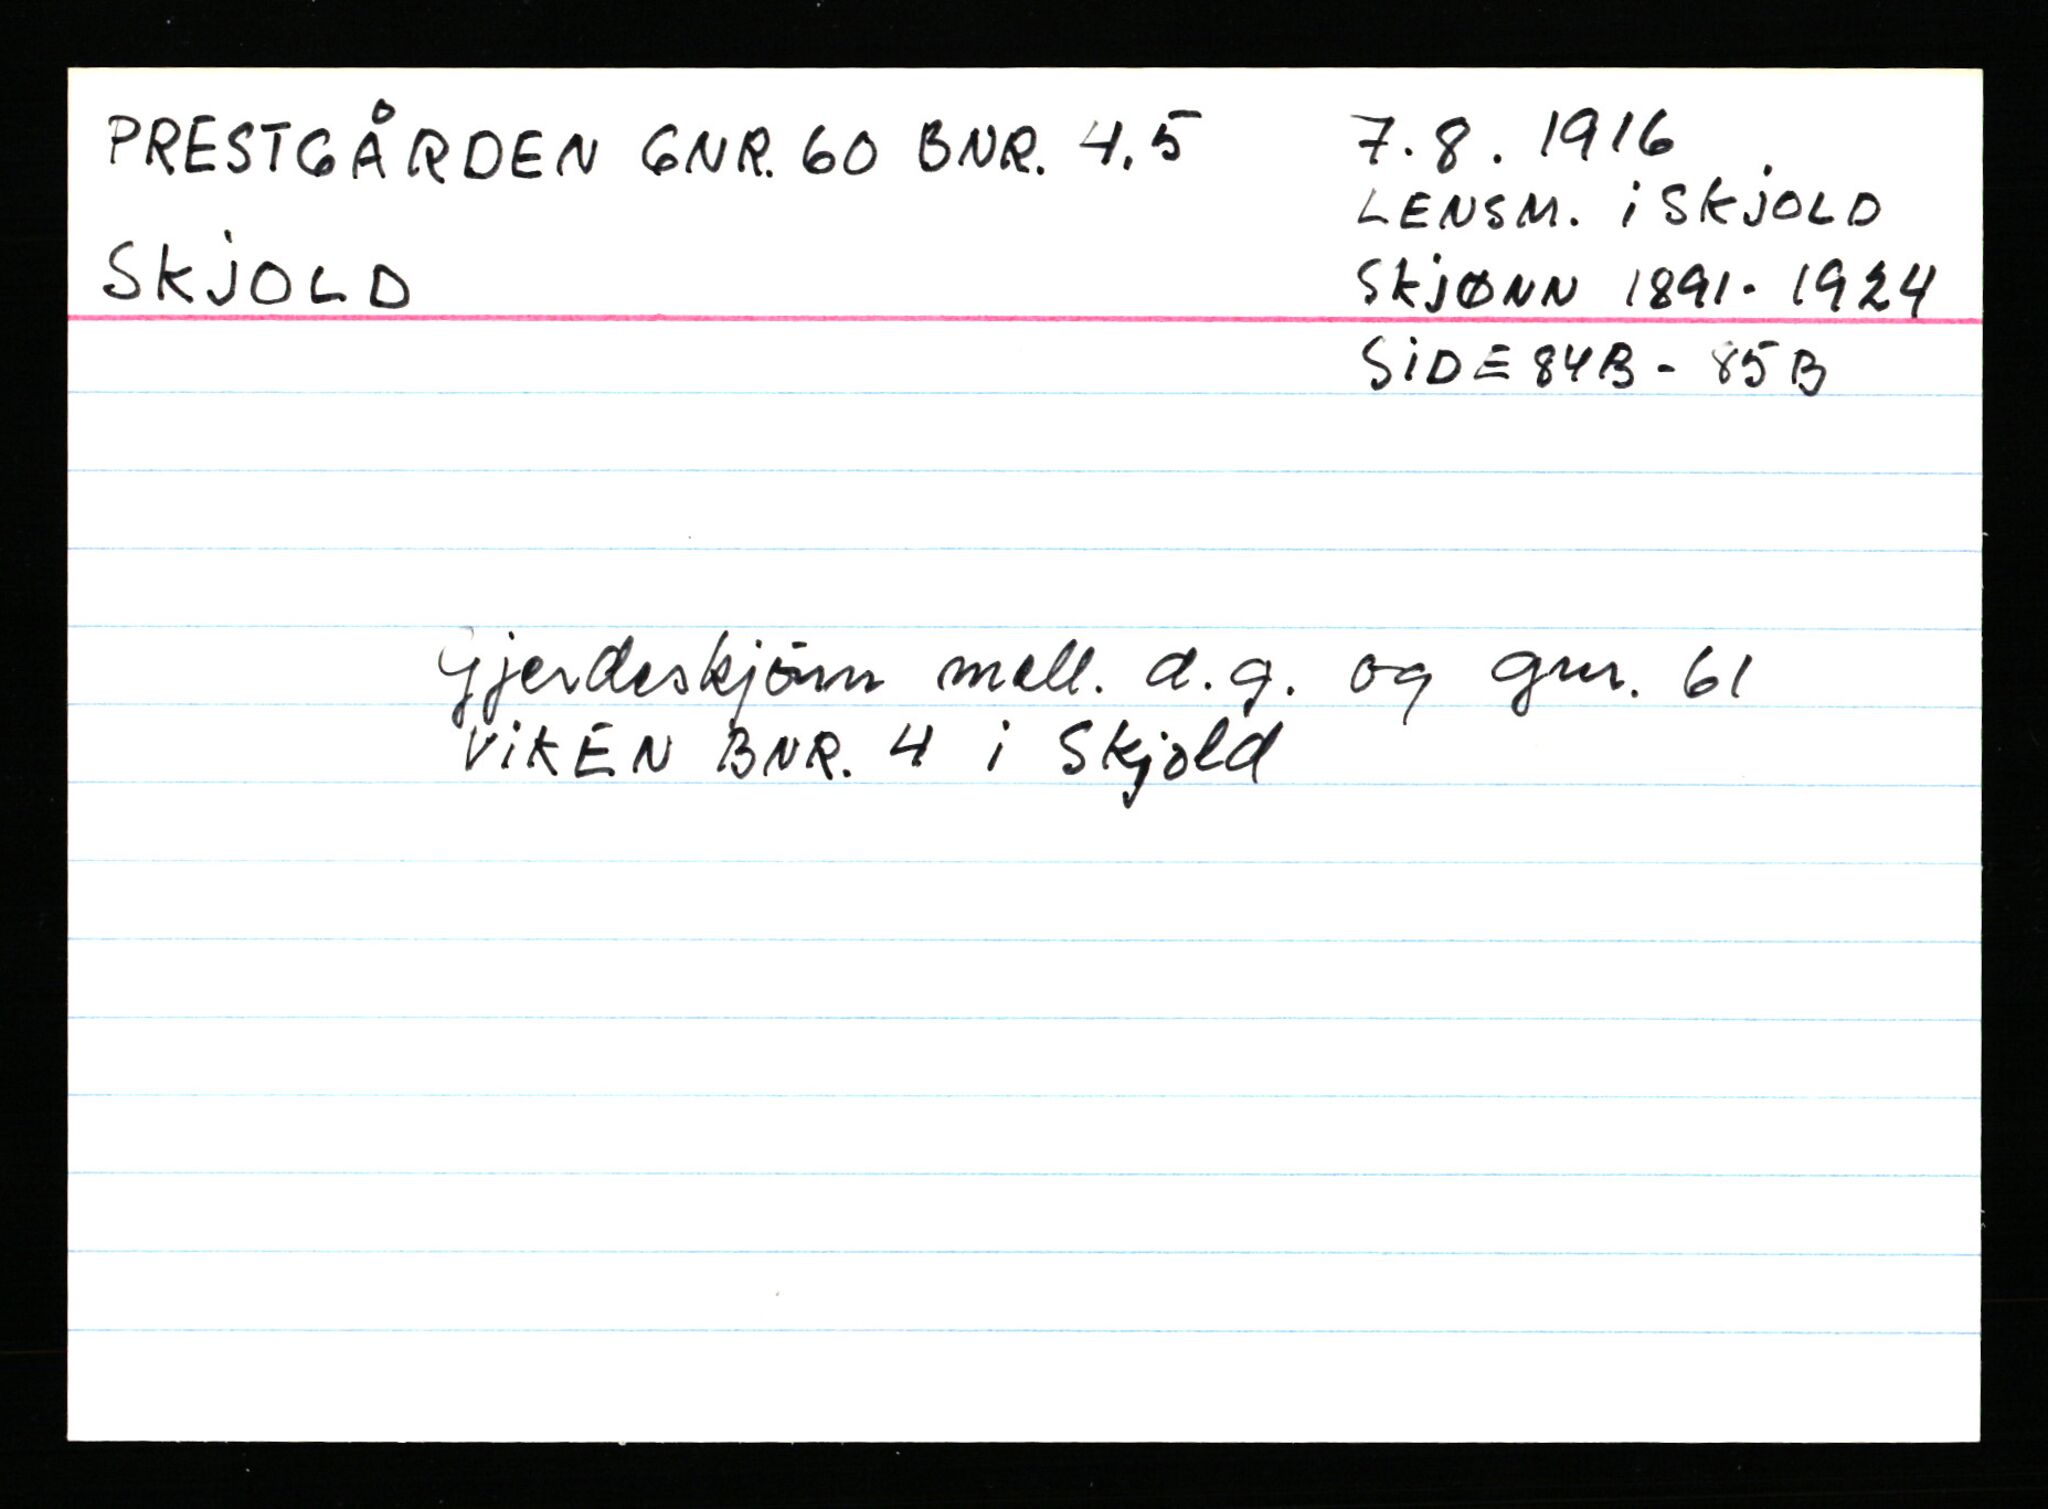 PRESTGÅRDEN GNR. 60 BNR. 4.5
SKJOLD
7.8.1916
LENSM. i SKJOLD
SKJØNN 1891-1924
SIDE 84B - 85B
Gjerdeskjönn mell. d.g. og gnr. 61
VIKEN BNR. 4 i Skjold